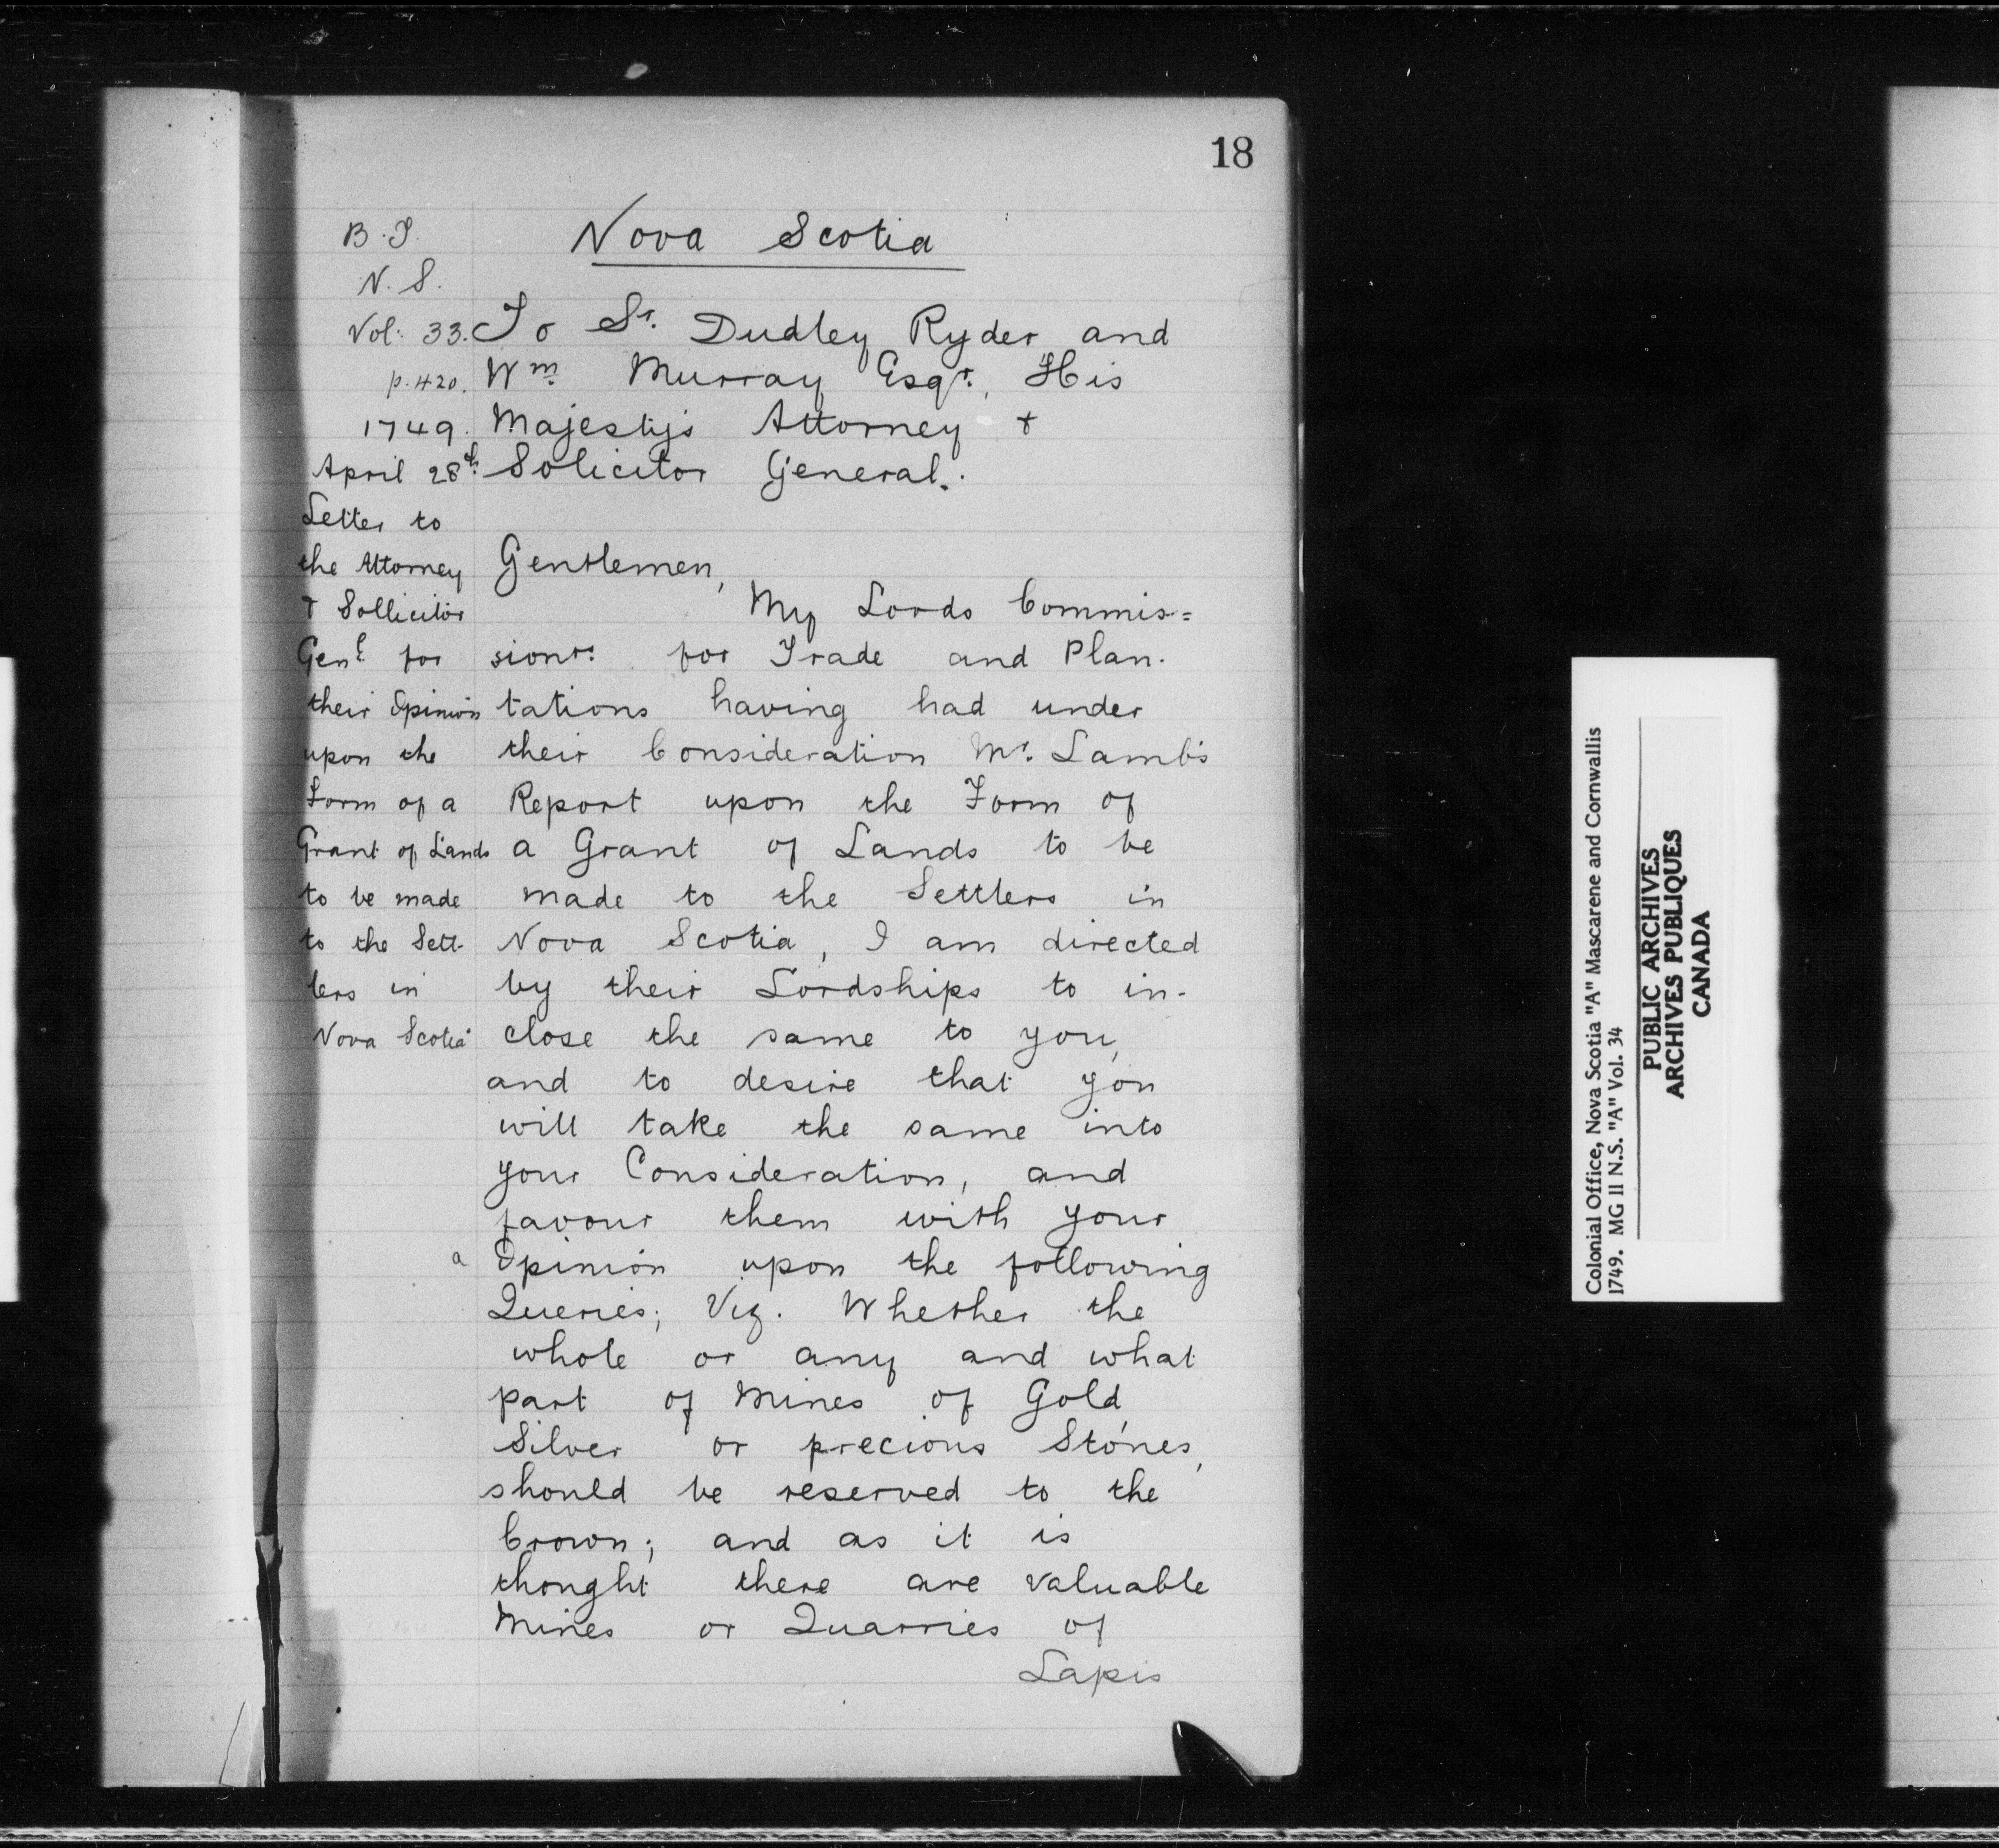 18
Nova Scotia
B.T.
N.S.
Vol: 33.
p. 420.
1749.
April 28th
Letter to
the Attorney
& Sollicitor
Genl. for
their Opinion
upon the
Form of a
Grant of Lands
to be made
to the Sett-
lers in
Nova Scotia
To Sr. Dudley Ryder and
Wm. Murray Esqr., His
Majesty's Attorney &
Solicitor General.
Gentlemen,
My Lords Commis=
sionrs. for Trade and Plan-
tations having had under
their Consideration Mr. Lamb's
Report upon the Form of
a Grant of Lands to be
made to the Settlers in
Nova Scotia, I am directed
by their Lordships to in-
close the same to you,
and to desire that you
will take the same into
your Consideration, and
favour them with your
a Opinion upon the following
Queries; Viz. Whether the
whole or any and what
part of Mines of Gold,
Silver or precious Stones,
should be reserved to the
Crown; and as it is
thought there are valuable
Mines or Quarries of
Lapis
Colonial Office, Nova Scotia "A" Mascarene and Cornwallis
1749. MG 11 N.S. "A" Vol. 34
PUBLIC ARCHIVES
ARCHIVES PUBLIQUES
CANADA